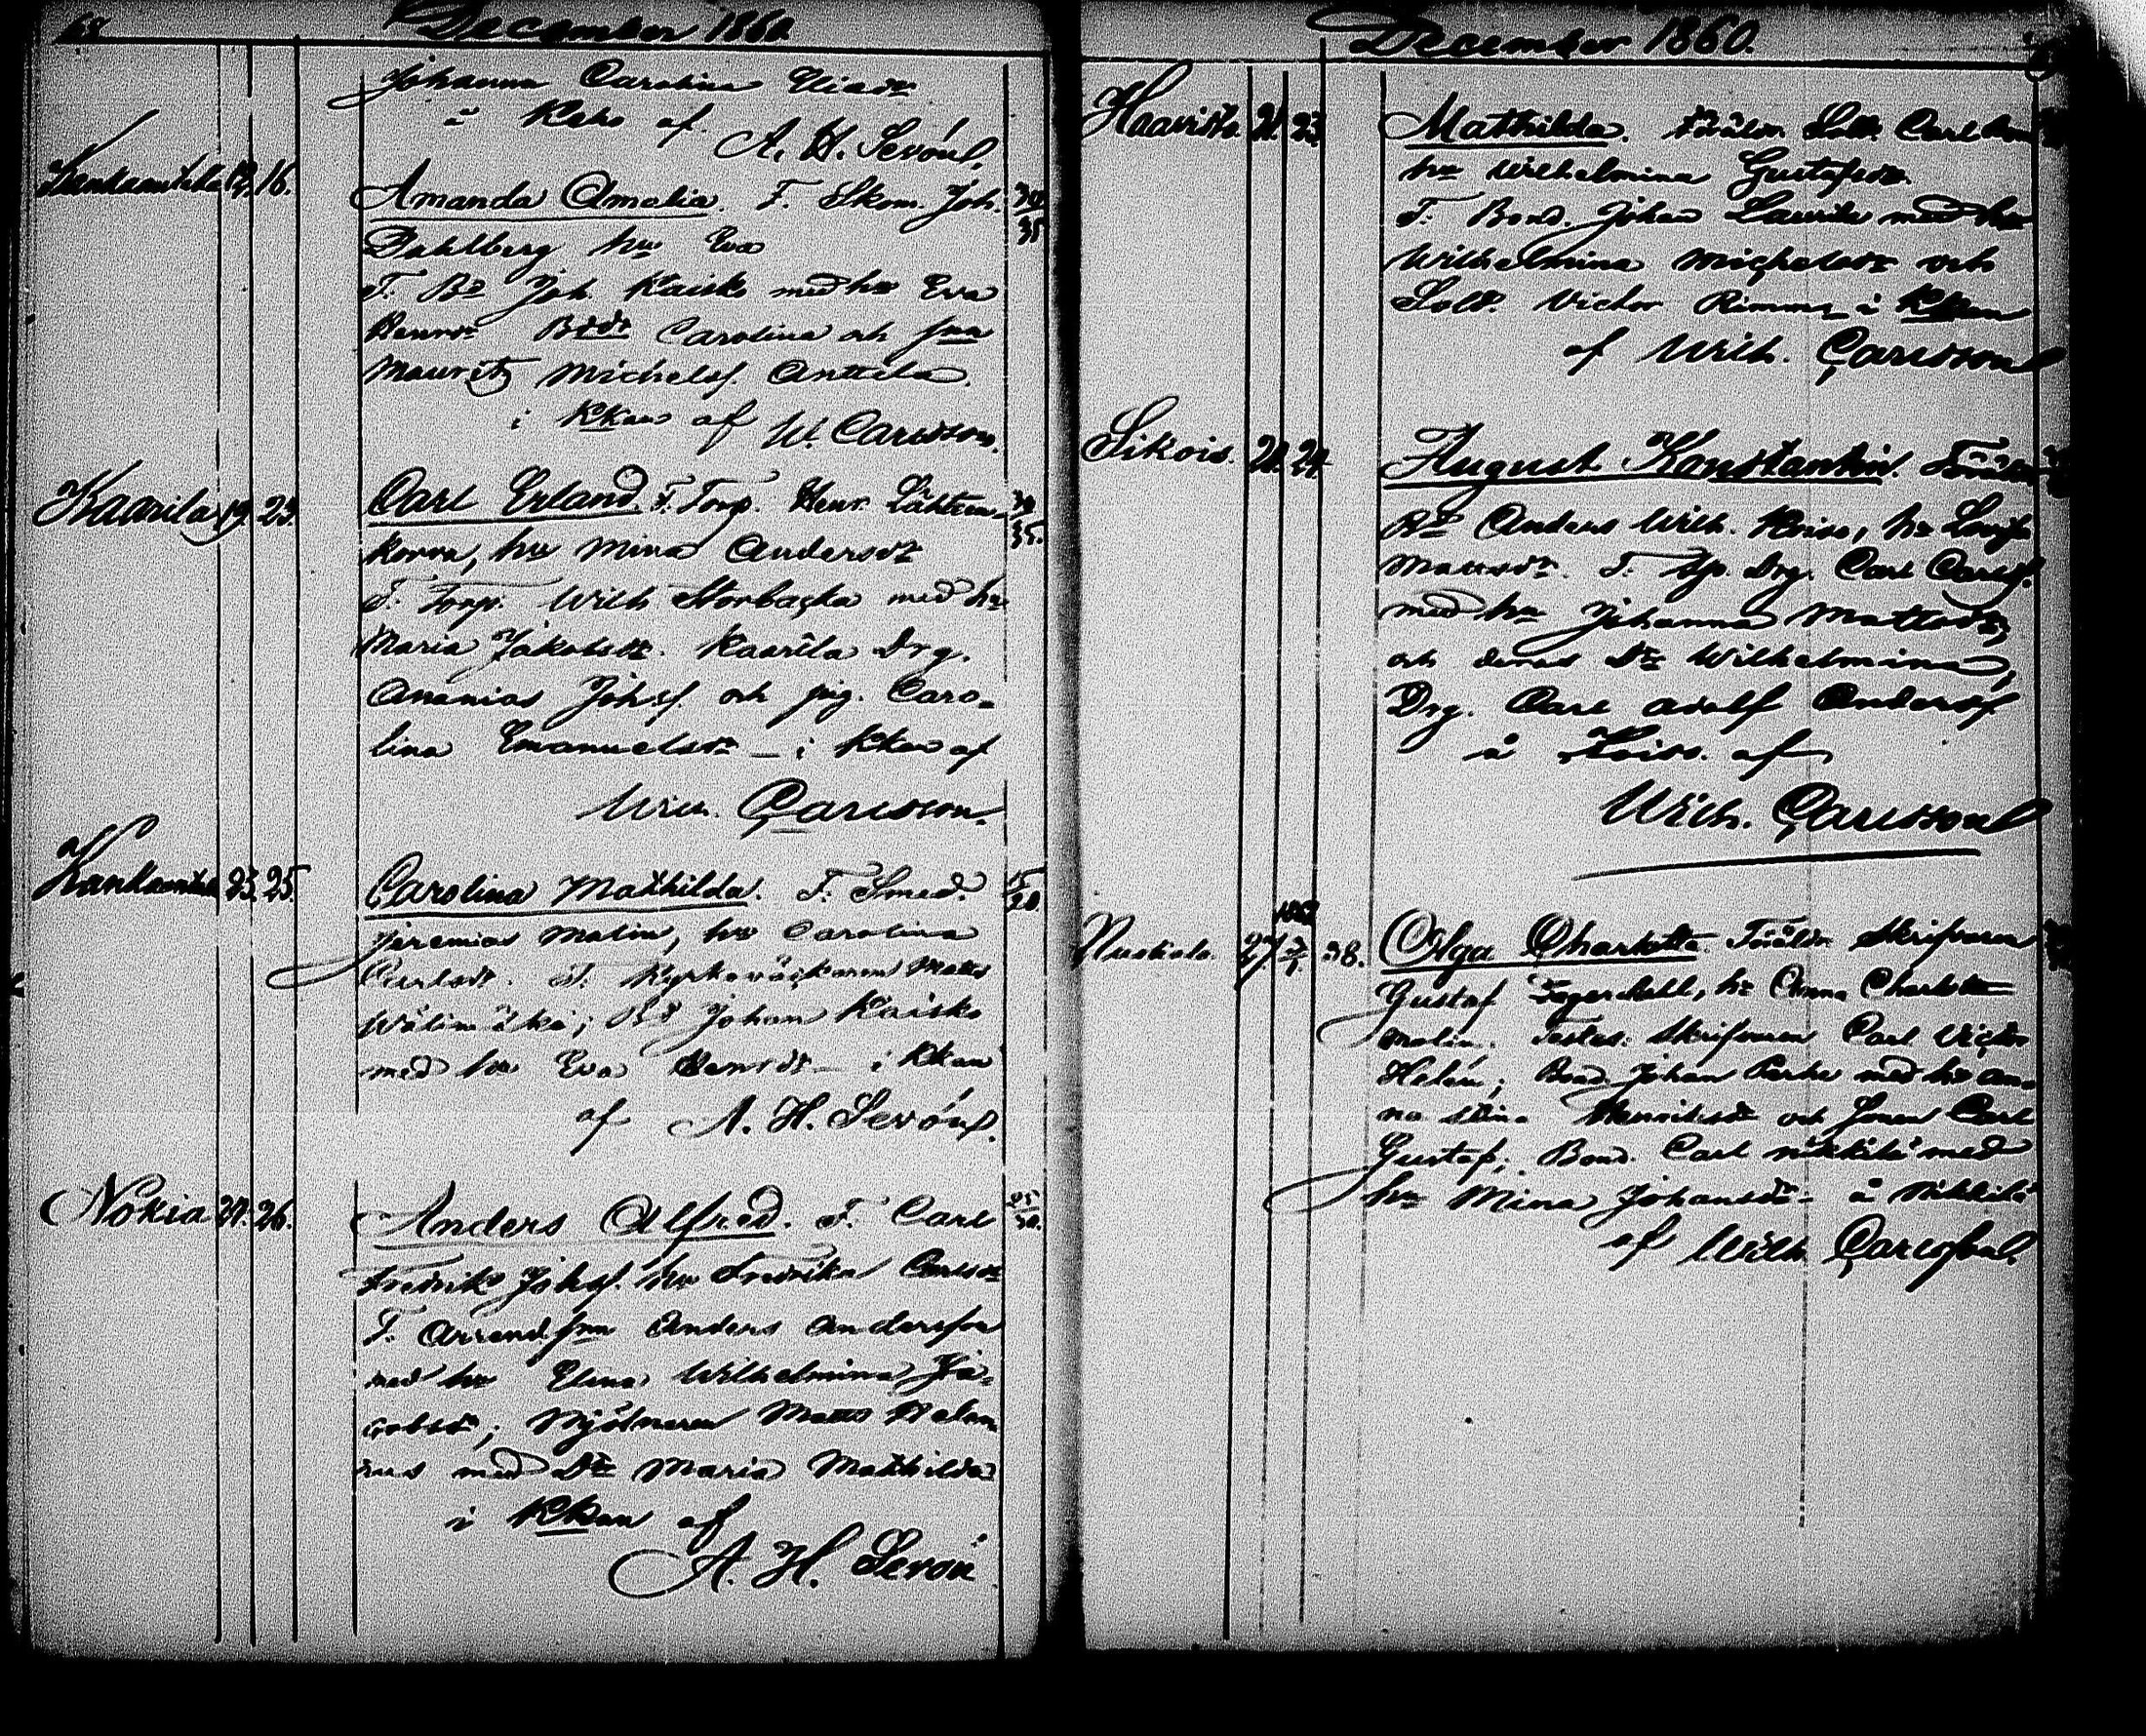 68.
December 1860
Johanna Carolina Eliasdr
å Keho af
A. H. Sevón.
Kankaantaka 12. 16. Amanda Amalia. F. Skom. Joh. 30/35
Dahlberg hu Eva
T. Bd Joh. Kaisko med hu Eva
Henrsdr Bddr Carolina och Jnn
Mauritz Michelss. Anttila.
i Kkan af W. Carlsson.
Kaarila 19. 23. Carl Erland. F. Torp. Henr. Lähteen- 30/35.
korva, hu Mina Andersdr
T. Torp. Wilh Storbacka med hu
Maria Jakobsdr. Kaarila Drg.
Ananias Johss. och pig. Caro-
lina Emanuelsdr – i Kkan af
Wilh. Carlsson.
Kankaantaka 23. 25. Carolina Mathilda. F. Smed. 15/20
Jeremias Malin, hu Carolina
Carlsdr. T. Kyrkoväktaren Matts
Wälimäki; Bd Johan Kaisko
med hu Eva Henrsdr – i Kkan
af A. H. Sevón.
Nokia 20. 26. Anders Alfred. F. Carl 25/30.
Fredrik Johss. hu Fredrika Carlsdr
T. Arrend. Jnn Anders Andersson
med hu Elina Wilhelmina Ja-
cobsdr; Mjölnaren Matts Helan
med Dr Maria Mathilda
i Kkan af
A. H. Sevón
December 1860.
Haavisto. 21. 23. Mathilda. Föräldr. Sold. Carl
hu Wilhelmina Gustafsdr.
T. Bond. Johan Laurila med hu
Wilhelmina Michelsdr och
Sold. Victor Rimmi i Kkan
af Wilh. Carlsson
Sikois. 21. 24. August Konstantin. Föräldr
Bd Anders Wilh. Koiso, hu Lovisa
Mattsdr. T. Drg. Carl Carlss.
med hu Johanna Mattsdr,
och deras Dr Wilhelmina,
Drg. Carl Adolf Anderss.
å Koiso. af
Wilh. Carlsson
1861
27 2/1. 38. Olga Charlotta. Föräldr Skrifvaren
Gustaf Fagerdahl, hu Anna Charlotta
Malin. Testes: Skrifvaren Carl Victor
Helén; Bond. Johan med hu An-
na Stina Henriksdr och Sonen Carl
Gustaf; Bond. Carl Nikkilä med
hu Mina Johansdr – å Nikkilä
af Wilh Carlsson.